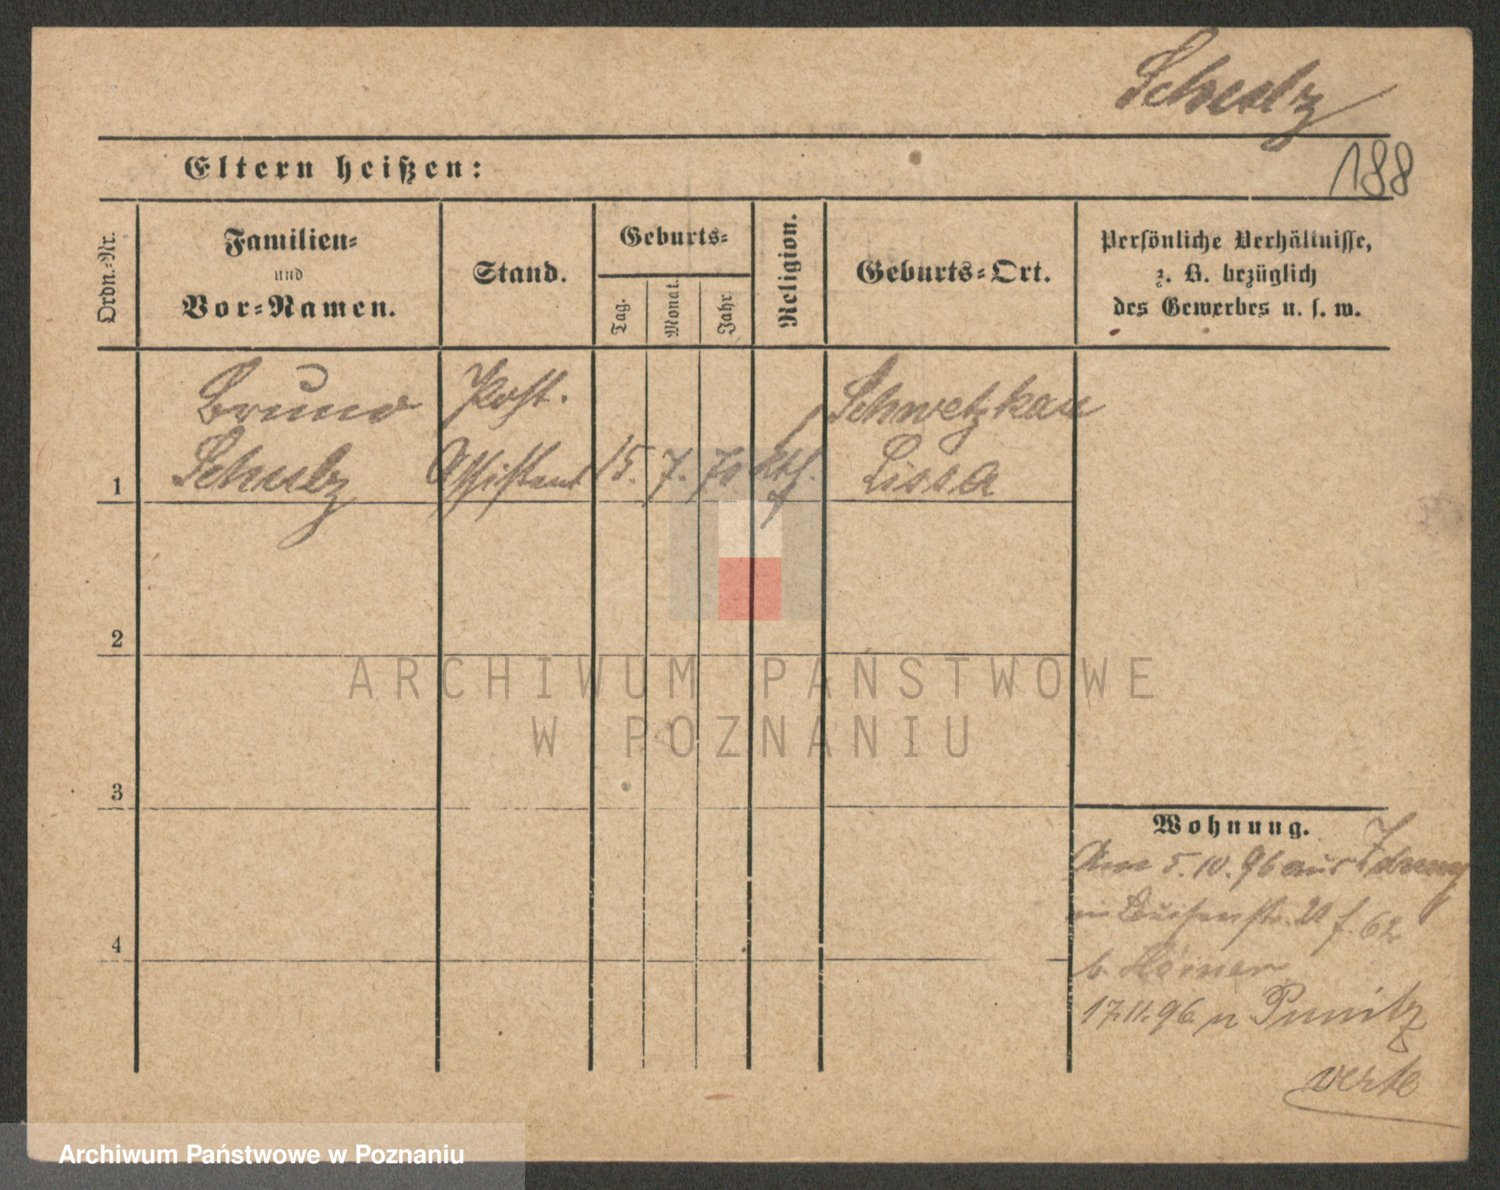 Schulz
188
Eltern heißen:
Ordn.-Nr.
Familien-
und
Vor-Namen.
Stand.
Geburts-
Tag.
Monat.
Jahr.
Religion.
Geburts-Ort.
Persönliche Verhältnisse,
z. B. bezüglich
des Gewerbes u. s. w.
Bruno Post. Schwetzkau
1 Schulz Assistent 15. 7. 70 kth. Lissa
2
3
4
ARCHIWUM PAŃSTWOWE
W POZNANIU
Wohnung.
5.10.96 aus
20 f. 62
b.
17.11.96 n Punitz
verte
Archiwum Państwowe w Poznaniu